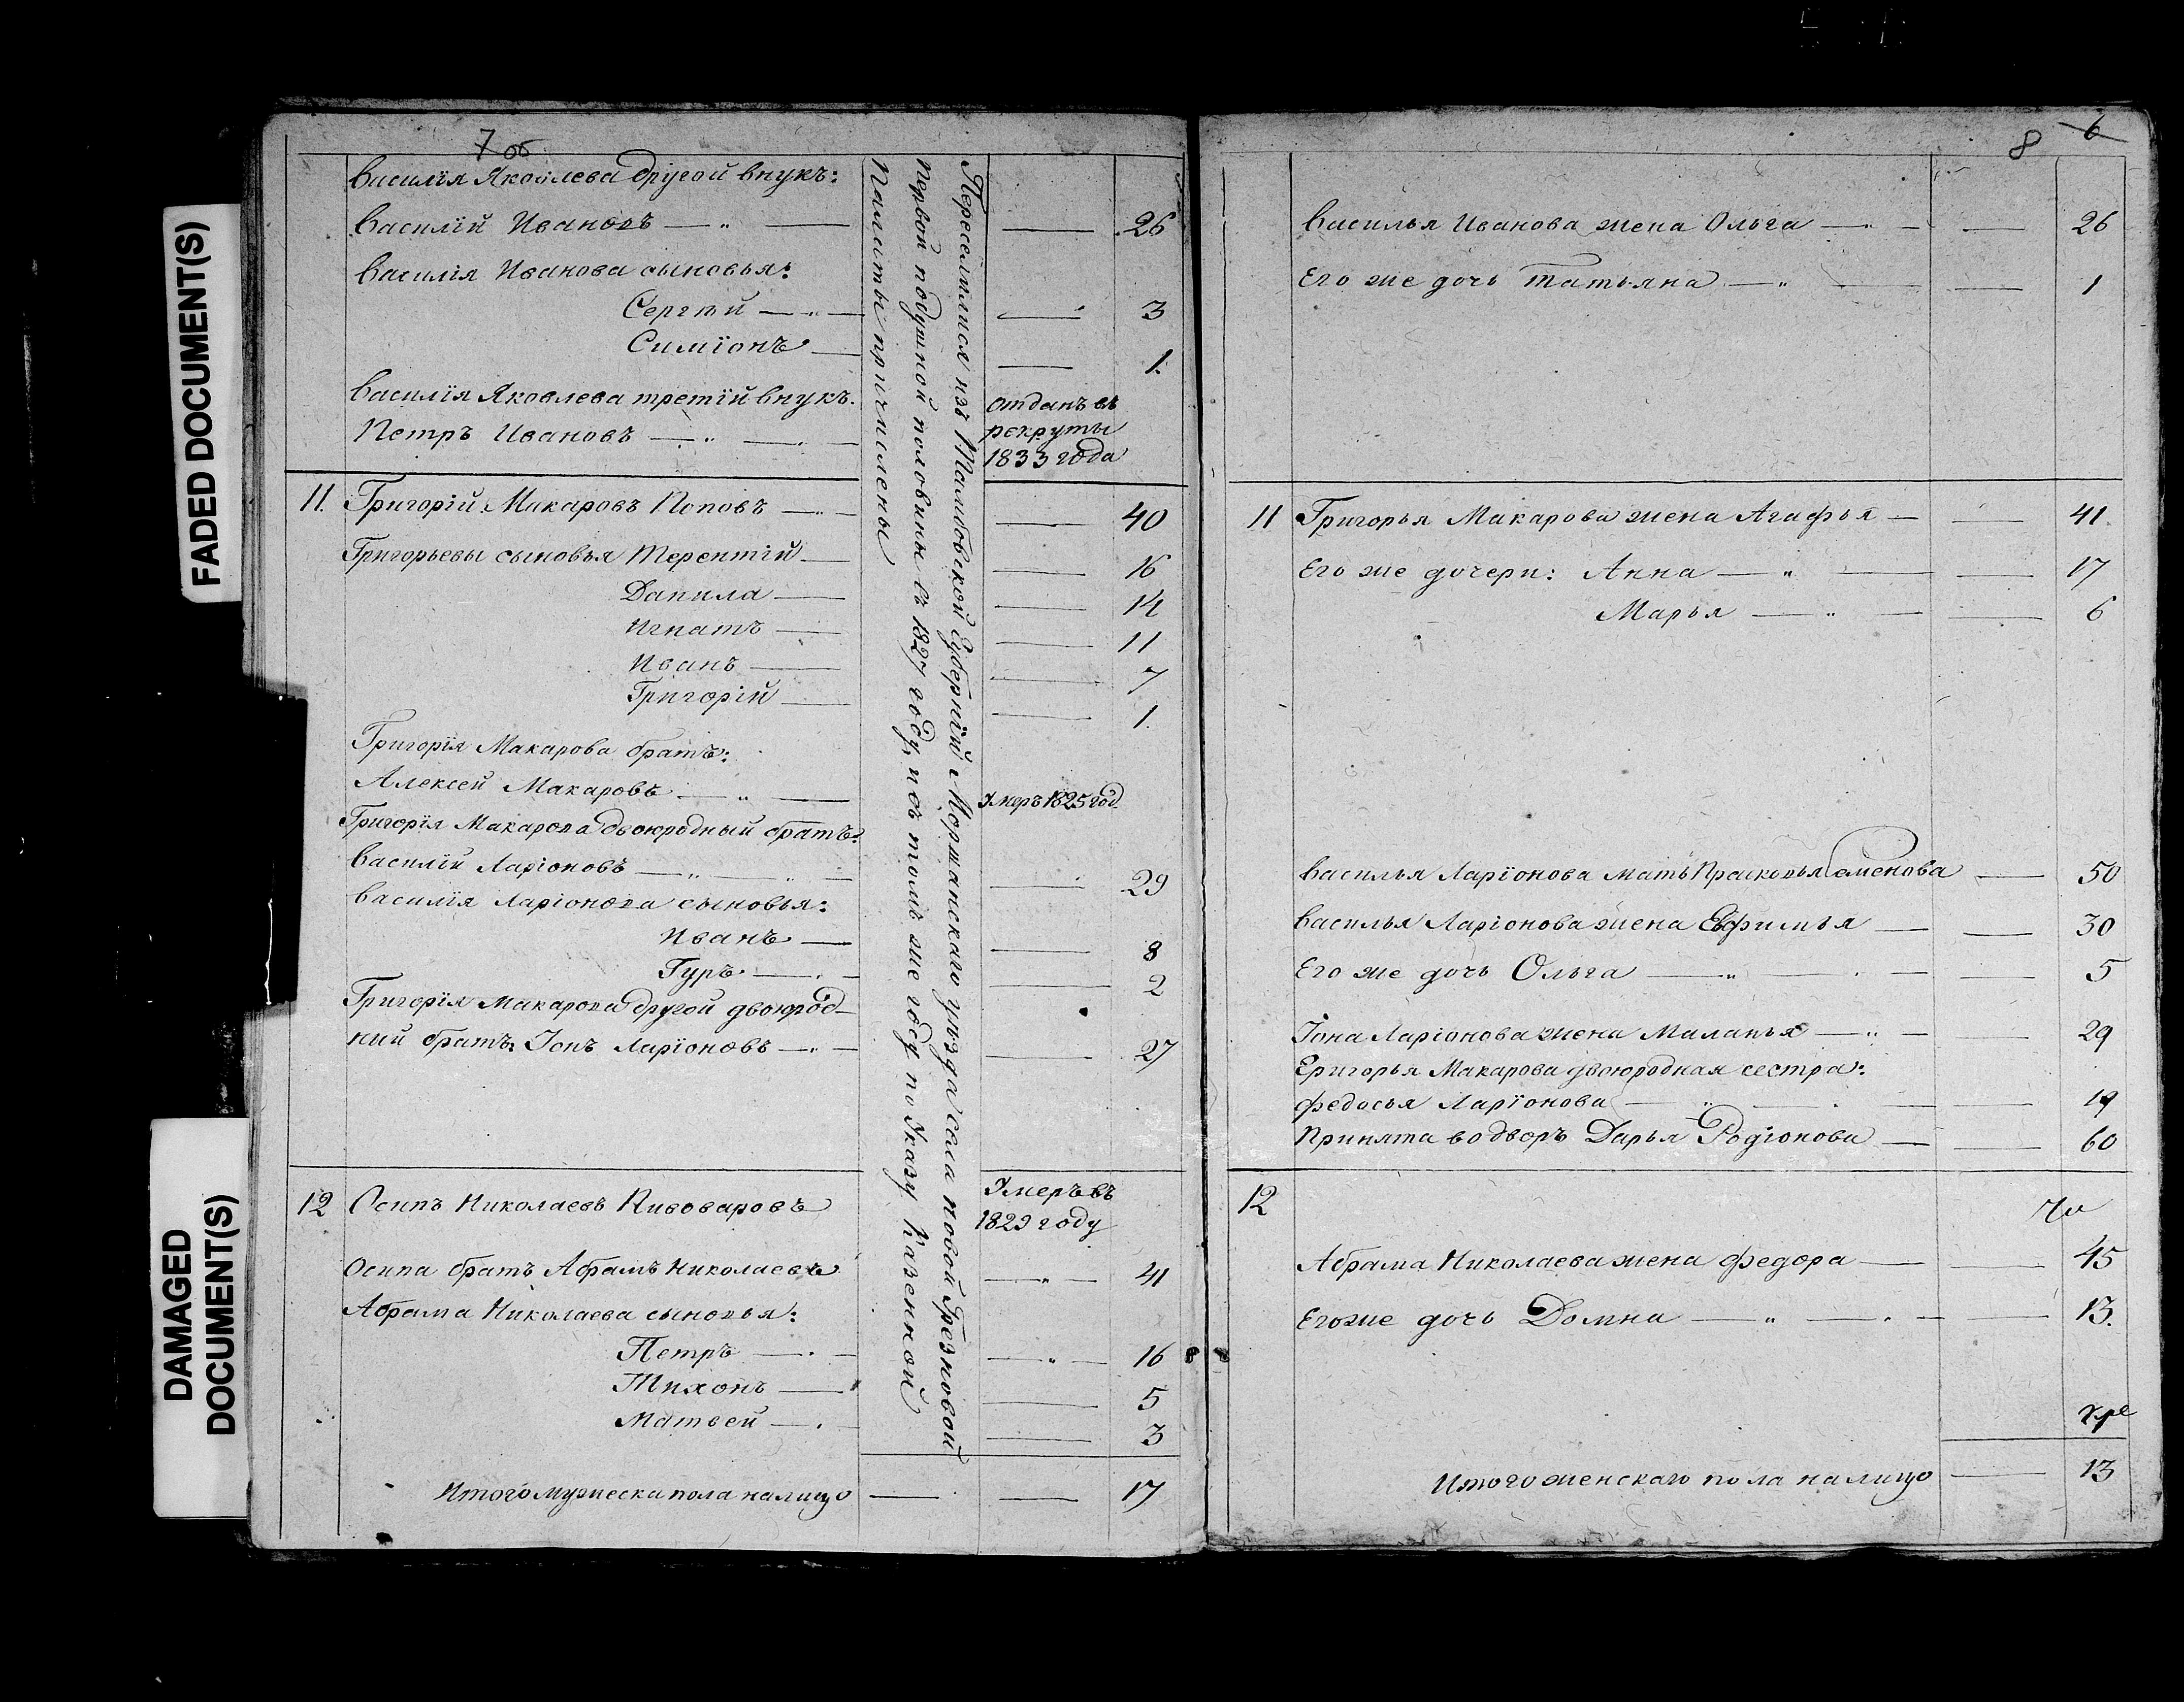 FADED DOCUMENT(S)
DAMAGED
DOCUMENT(S)
7 об
Василія Яковлева другой внукъ:
Василій Ивановъ 26
Василія Иванова сыновья:
Сергѣй 3
Симіонъ 1.
Василія Яковлева третій внукъ.
Петръ Ивановъ
отданъ въ
рекруты
1833 года
11. Григорій Макаровъ Поповъ 40
Григорьевы сыновья Терентій 16
Данила 14
Игнатъ 11
Иванъ 7
Григорій 1.
Григорія Макарова братъ:
Алексей Макаровъ Умеръ 1825 год
Григорія Макарова двоюродный братъ:
Василій Ларіоновъ 29
Василія Ларіонова сыновья:
Иванъ 8
Гуръ 2
Григорія Макарова другой двоюрод-
ний братъ Іонъ Ларіоновъ 27
12 Осипъ Николаевъ Пивоваровъ
Умеръ въ
1829 году
Осипа братъ Абрамъ Николаевъ 41
Абрама Николаева сыновья:
Петръ 16
Тихонъ 5
Матвей 3
Итого мужеска пола налицо 17
Переселились изъ Тамбовской Губерній Моршанскаго уѣзда села новой Грезновой
первой подушной половины въ 1827 году, и въ томъ же году по Указу Казенной
Палаты причислены
8 6
Василья Иванова жена Ольга 26
Его же дочь Татьяна 1
11 Григорья Макарова жена Агафья 41.
Его же дочери: Анна 17
Марья 6
Василья Ларіонова мать Прасковья Семенова 50
Василья Ларіонова жена Евфимья 30
Его же дочь Ольга 5
Іона Ларіонова жена Маланья 29
Григорья Макарова двоюродная сестра:
Федосья Ларіонова 19
Принята во дворъ Дарья Родіонова 60
12
Абрама Николаева жена Федора 45
Его же дочь Домна 13.
Итого женскаго пола налицо 13